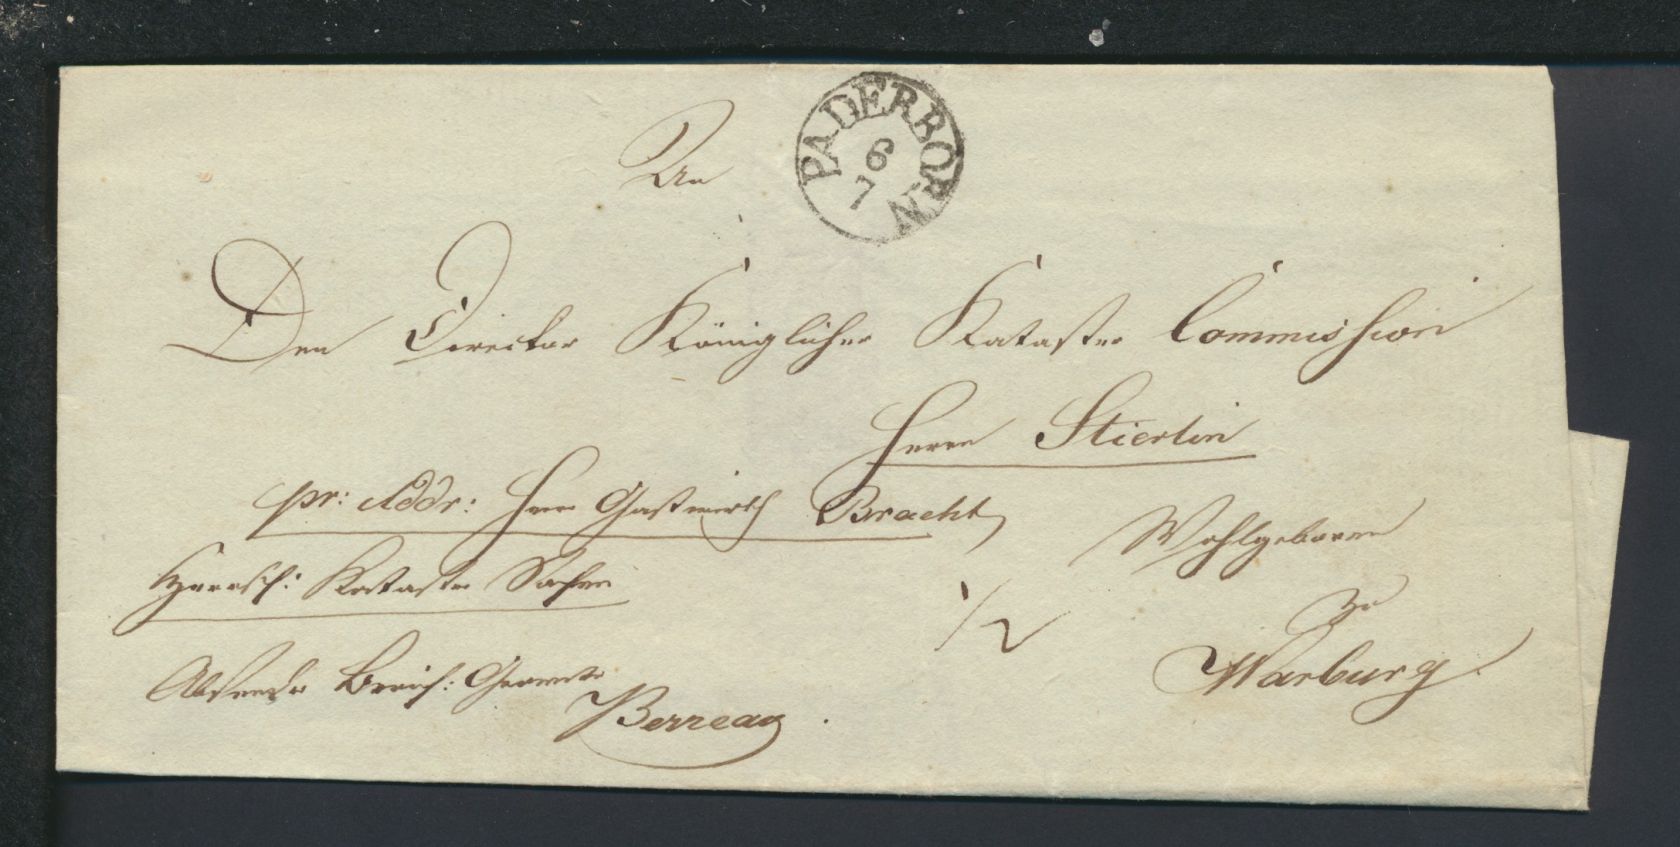 An
PADERBORN
6
7
Den Director Königlicher Kataster Commission
Herrn Stierlin
pr: Addr: Herrn Gastwirth Bracht
Wohlgeboren
Herrsch: Kataster Sachen
zu
Warburg
Absender Geometer
Berreau